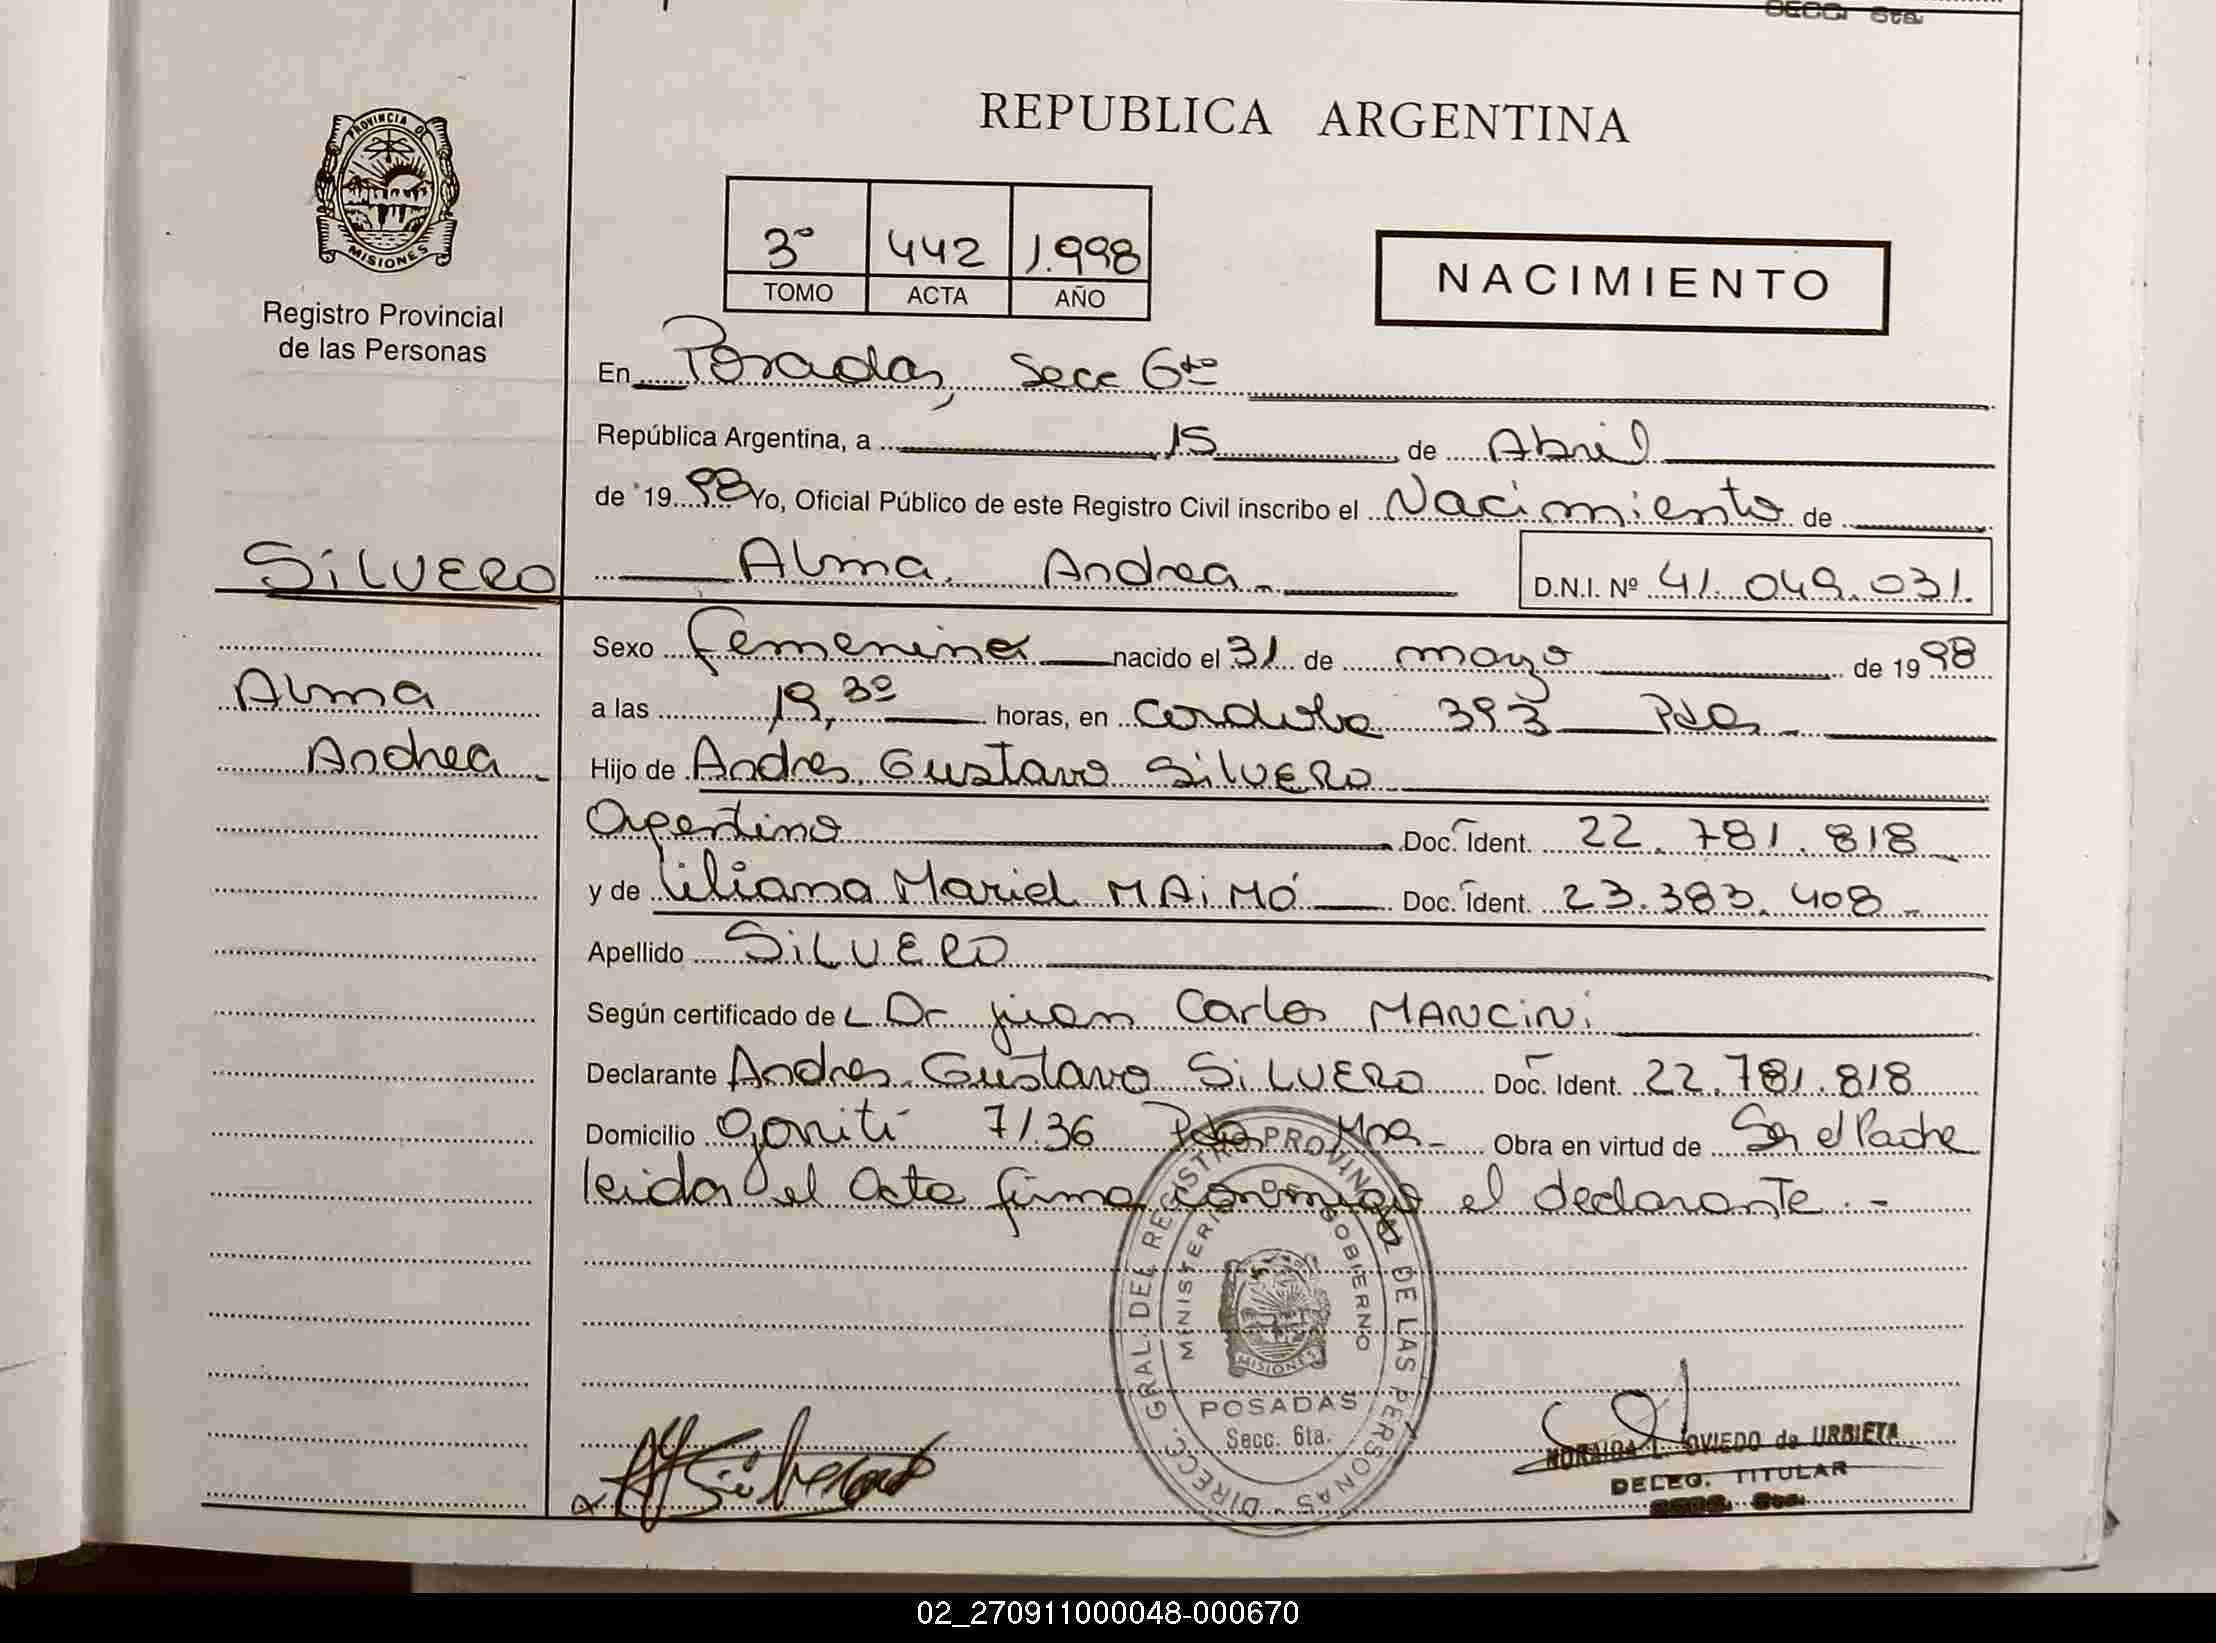 SECC. 6ta.
REPUBLICA ARGENTINA
PROVINCIA DE MISIONES
Registro Provincial
de las Personas
3º 442 1.998
TOMO ACTA AÑO
NACIMIENTO
En Posadas, Secc 6ta
República Argentina, a 15 de Abril
de 19 98 Yo, Oficial Público de este Registro Civil inscribo el Nacimiento de
SILVERO
Alma Andrea
D.N.I. Nº 41.049.031.
Sexo femenino nacido el 31 de mayo de 19 98
Alma
a las 19,30 horas, en Cordoba 393 Pdas
Andrea
Hijo de Andres Gustavo SILVERO
Argentino Doc. Ident. 22.781.818
y de Liliana Mariel MAIMÓ Doc. Ident. 23.383.408
Apellido SILVERO
Según certificado de L Dr Juan Carlos MANCINI
Declarante Andres Gustavo SILVERO Doc. Ident. 22.781.818
Domicilio 7136 Pdas Mnes Obra en virtud de Ser el Padre
leida el Acta firma conmigo el declarante.-
DIRECC. GRAL. DEL REGISTRO PROVINCIAL DE LAS PERSONAS
MINISTERIO DE GOBIERNO
MISIONES
POSADAS
Secc. 6ta.
NORAIDA L. OVIEDO de URBIETA
DELEG. TITULAR
SECC. 6ta.
02_270911000048-000670